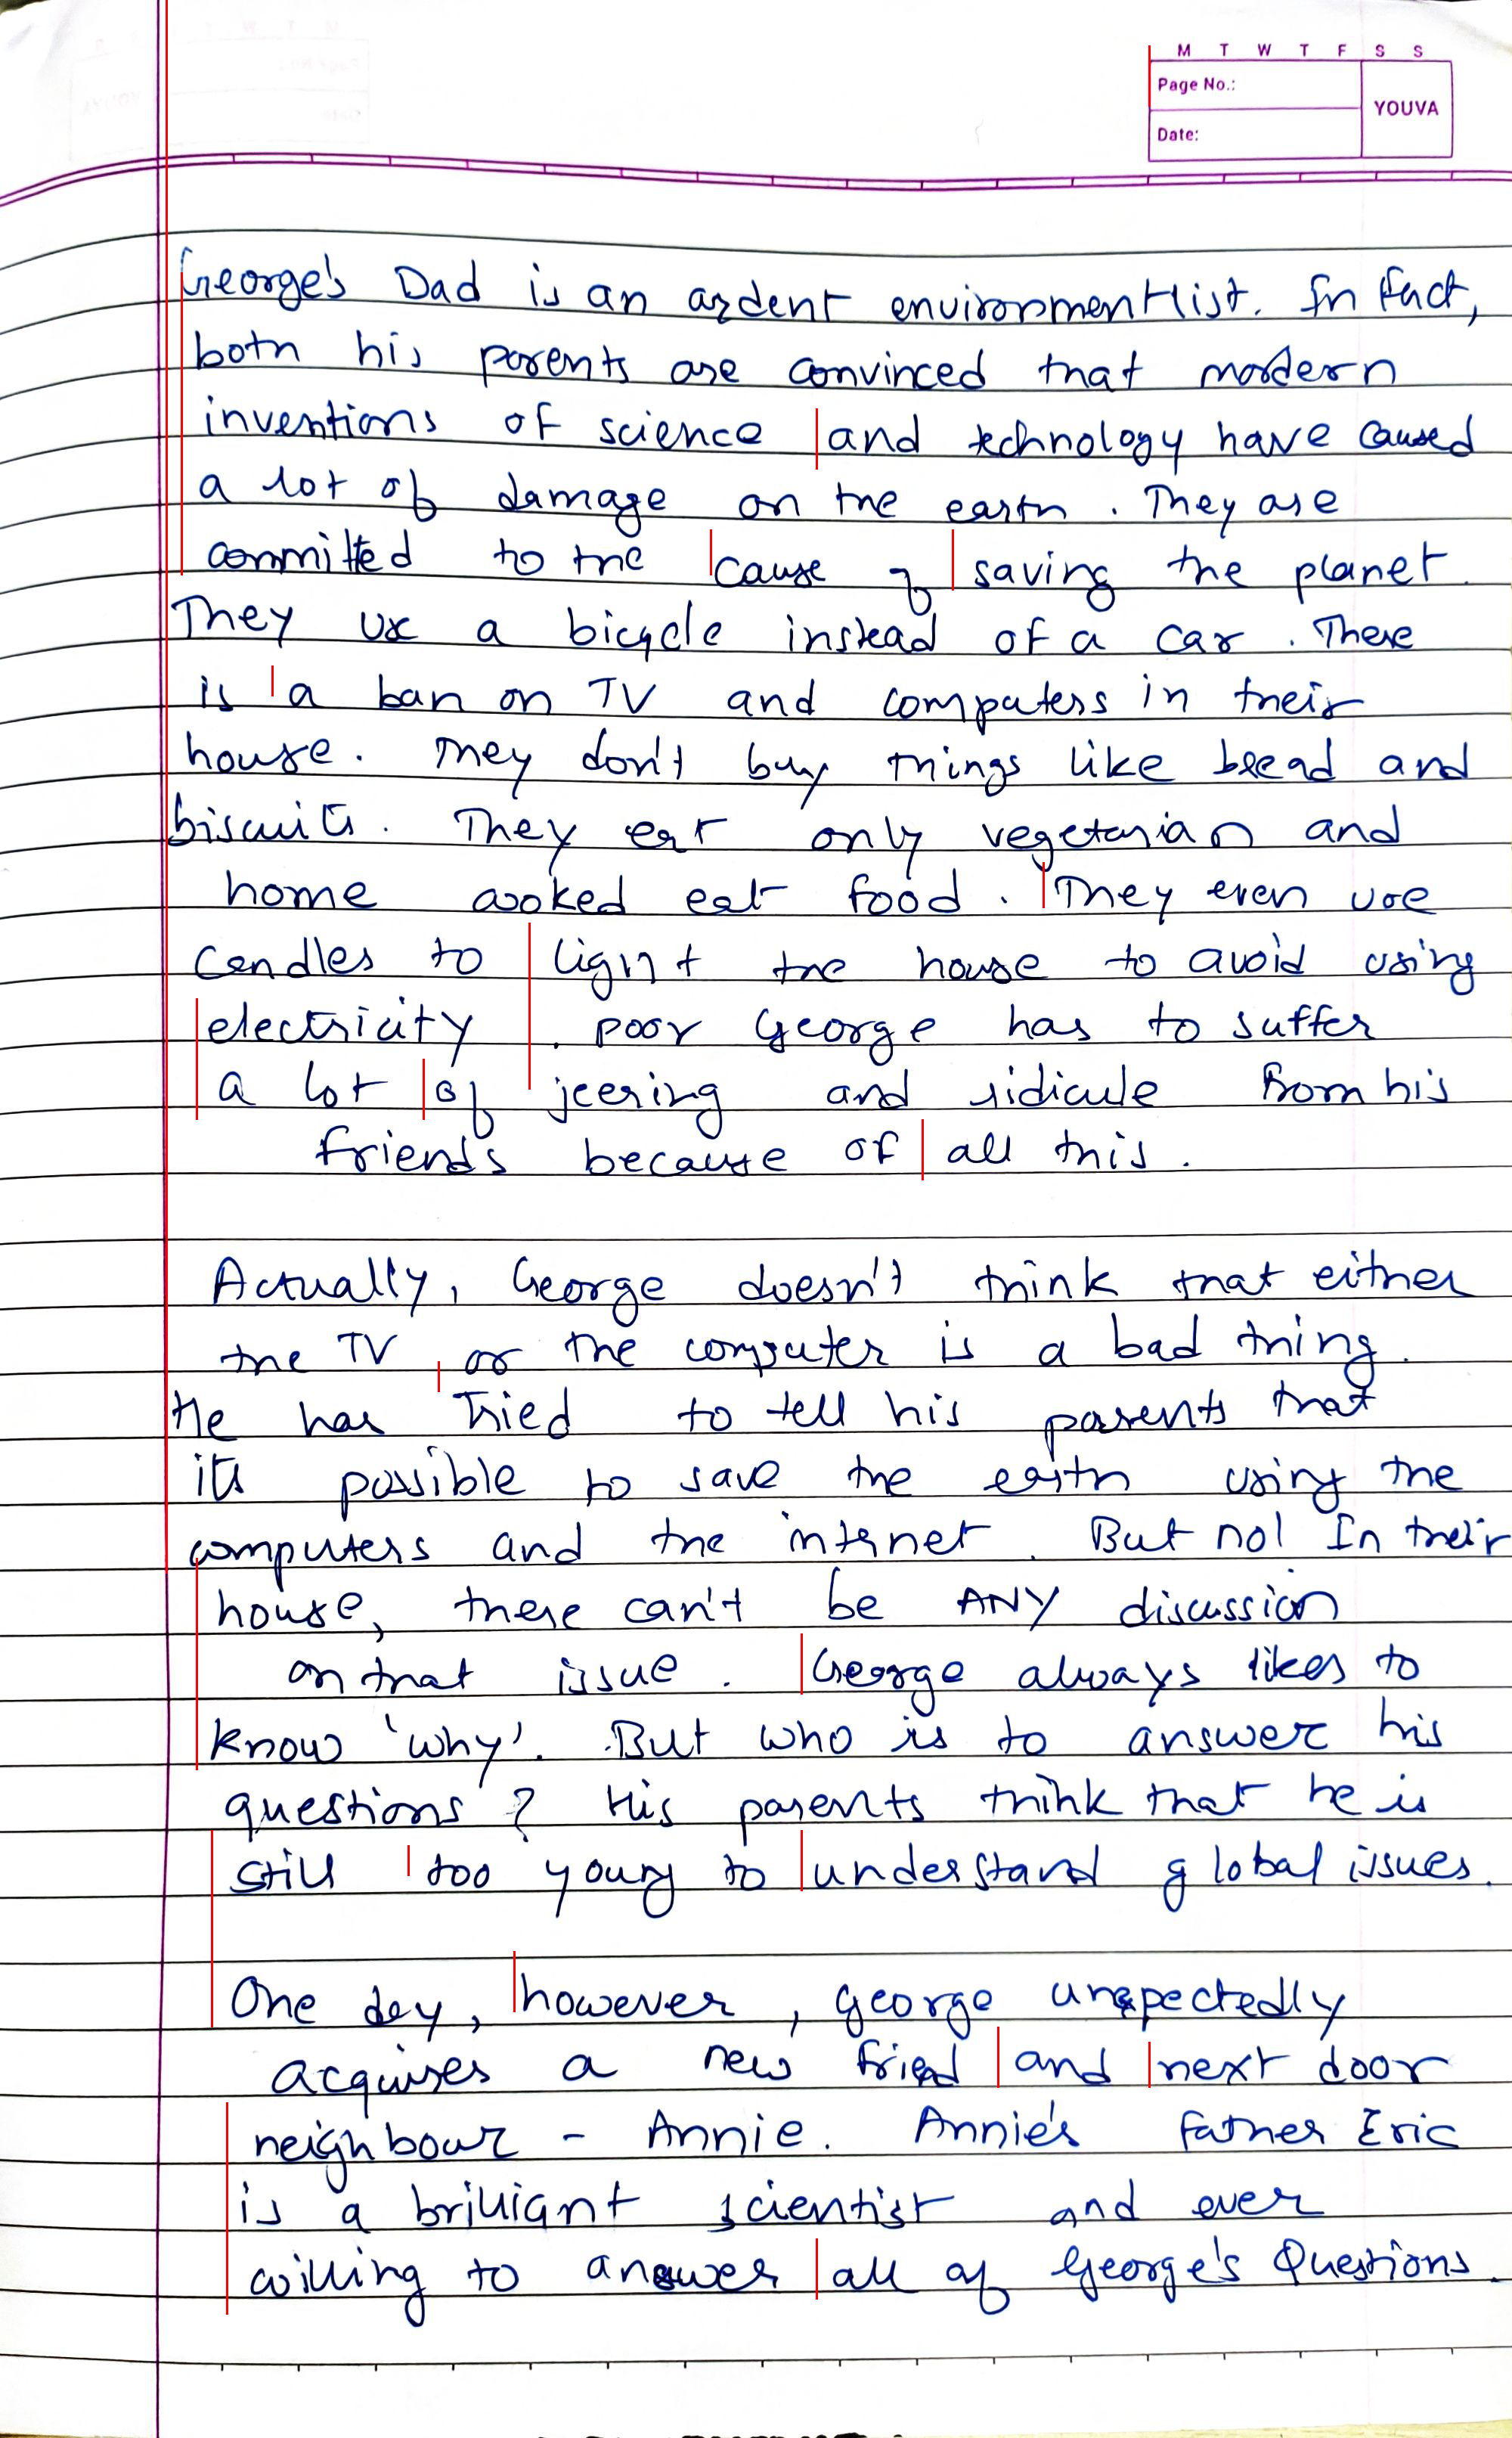 M T W T F S S
Page No.:
YOUVA
Date:
George's Dad is an ardent environmentlist. In fact,
both his parents are convinced that mordern
inventions of science and technology have caused
a lot of damage on the earth. They are
committed to the cause of saving the planet.
They use a bicycle instead of a car. There
is a ban on TV and computers in their
house. They don't buy things like bread and
biscuits. They eat only vegetarian and
home cooked eat food. They even use
candles to light the house to avoid using
electricity. poor George has to suffer
a lot of jeering and ridicule from his
friends because of all this.
Actually, George doesn't think that either
the TV or the computer is a bad thing.
He has Tried to tell his parents that
its possible to save the earth using the
computers and the internet. But no! In their
house, there can't be ANY discussion
on that issue. George always likes to
know 'why'. But who is to answer his
questions? His parents think that he is
still too young to understand global issues.
One day, however, george unexpectedly
acquires a new friend and next door
neighbour - Annie. Annie's father Eric
is a brilliant scientist and ever
willing to answer all of George's Questions.